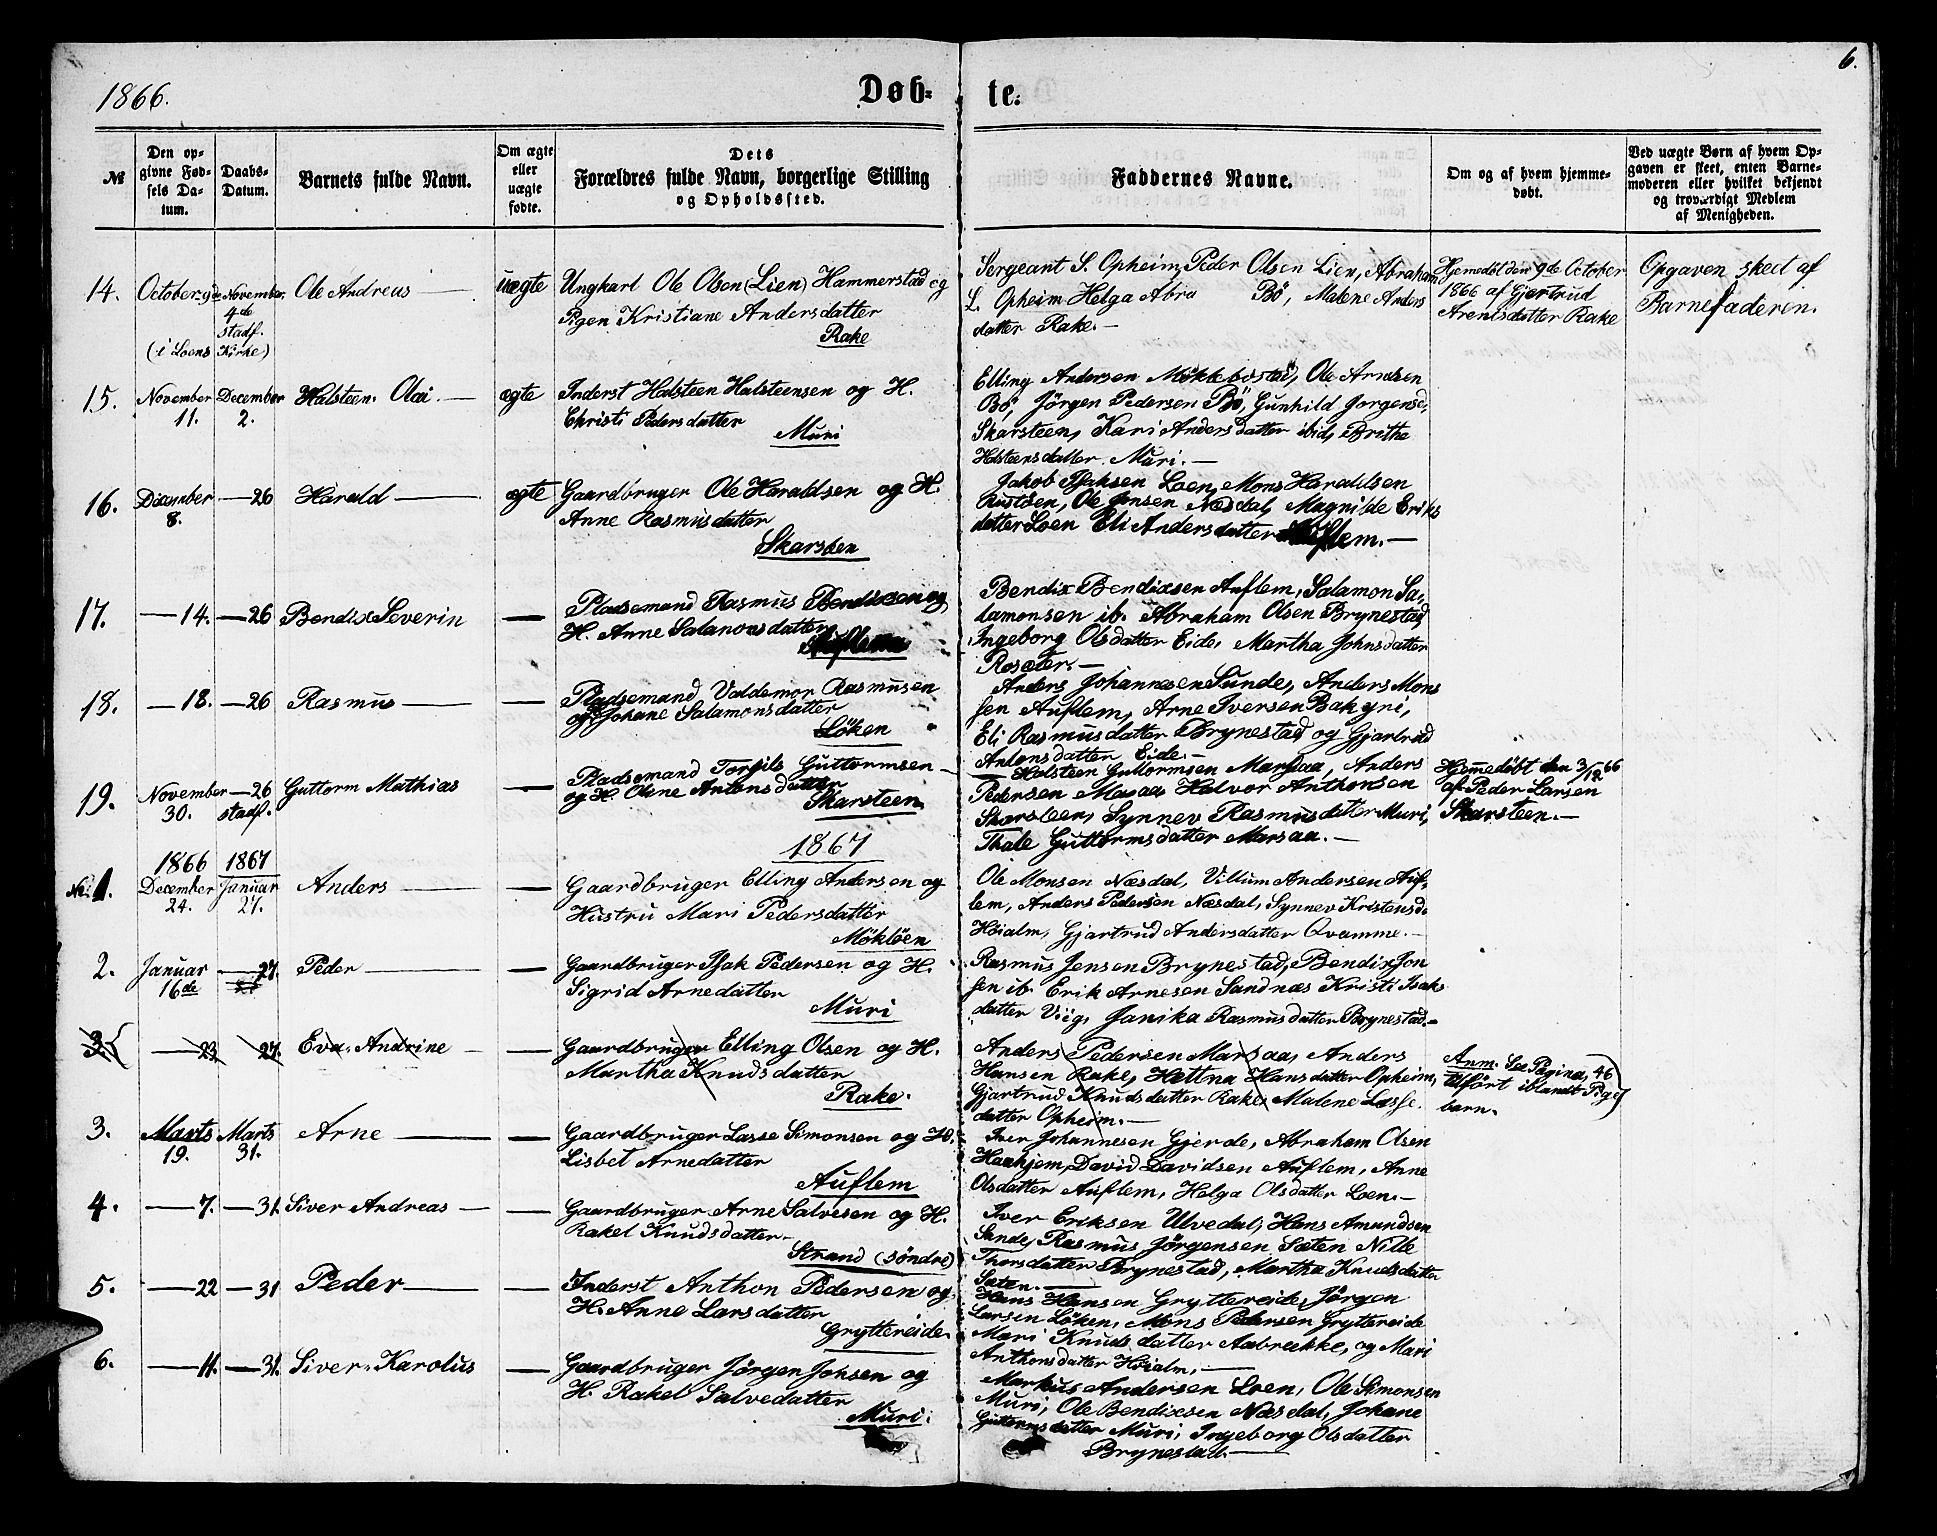 6.
1866.
Døb-
te.
№
Den op-
givne Fød-
sels Da-
tum.
Daabs-
Datum.
Barnets fulde Navn.
Om ægte
eller
uægte
fødte.
Dets
Forældres fulde Navn, borgerlige Stilling
og Opholdssted.
Faddernes Navne.
Om og af hvem hjemme-
døbt.
Ved uægte Børn af hvem Op-
gaven er skeet, enten Barne-
moderen eller hvilket bekjendt
og troværdigt Medlem
af Menigheden.
14.
October 9de
(i Loens
November
4de
stadf.
Kirke)
Ole Andreas
uægte
Ungkarl Ole Olsen (Lien) Hammerstad og
Pigen Kristiane Andersdatter
Rake
Sergeant S. Opheim, Peder Olsen Lien, Abraham
L. Opheim Helga Abra Bö, Malene Anders
datter Rake.
Hjemedøbt den 9de October
1866 af Gjertrud
Arentsdatter Rake
Opgaven skeet af
Barnefaderen.
15.
November
11.
December
2.
Halsteen Olai
ægte
Inderst Halsteen Halsteensen og H.
Christi Pedersdatter
Muri
Elling Andersen Mökkebostad, Ole Arnesen
Bö, Jörgen Pedersen Bö, Gunhild Jorgensd.
Skarsteen, Kari Andersdatter ibid, Brithe
Halsteensdatter Muri.
16.
December
8.
26
Harald
ægte
Gaardbruger Ole Haraldsen og H.
Anne Rasmusdatter
Skarsteen
Jakob Isaksen Loen, Mons Haraldsen
Rustöen, Ole Jensen Næsdal, Magnilde Eriks
datter Loen Eli Andersdatter Auflem.
17.
14.
26
Bendix Severin
Pladsemand Rasmus Bendixsen og
H. Anne Salamonsdatter
Auflem
Bendix Bendixsen Auflem, Salamon Sa-
lamonsen ib. Abraham Olsen Brynestad,
Ingeborg Olsdatter Eide, Martha Johnsdatter
Rosæter.
18.
18.
26
Rasmus
Pladsemand Valdemor Rasmusen
og Johane Salamonsdatter
Löken
Anders Johannesen Sunde, Anders Mons
sen Auflem, Arne Iversen Bakyri,
Eli Rasmusdatter Brynestad og Gjartrud
Antonsdatter Eide.
19.
November
30.
26
stadf.
Guttorm Mathias
Pladsemand Torgils Guttormsen
og H. Oline Antonsdatter
Skarsteen
Halsteen Guttormsen Marsaa, Anders
Pedersen Marsaa Halvor Anthonsen
Skarsteen, Synnev Rasmusdatter Muri,
Thale Guttormsdatter Marsaa.
Hjemmedöbt den 3/12 66
af Peder Larsen
Skarsteen.
1867
No. 1.
1866
December
24.
1867
Januar
27.
Anders
Gaardbruger Elling Andersen og
Hustru Mari Pedersdatter
Möklöen
Ole Monsen Næsdal, Villum Andersen Auf-
lem, Anders Pedersen Næsdal, Synnev Kristensd.
Höialm, Gjartrud Andersdatter Qvamme.
2.
Januar
16de
27.
Peder
Gaardbruger Isak Pedersen og H.
Sigrid Arnedatter
Muri
Rasmus Jensen Brynestad, Bendix Jon
sen ib. Erik Arnesen Sandnæs Kristi Isaks
datter Viig, Janika Rasmusdatter Brynestad.
3.
23
27.
Eva Andrine
Gaardbruger Elling Olsen og H.
Martha Knudsdatter
Rake.
Anders Pedersen Marsaa, Anders
Hansen Rake, Hettna Hansdatter Opheim,
Gjartrud Knudsdatter Rake, Malene Lasse
datter Opheim.
Anm. See Pagina, 46
tilfört iblandt Pige
barn.
3.
Marts
19.
Marts
31.
Arne
Gaardbruger Lasse Simonsen og H.
Lisbet Arnedatter
Auflem
Iver Johannesen Gjerde, Abraham Olsen
Haahjem, David Davidsen Auflem, Anne
Olsdatter Auflem, Helga Olsdatter Loen.
4.
7.
31.
Siver Andreas
Gaardbruger Arne Salvesen og H.
Rakel Knudsdatter
Strand (söndre)
Iver Eriksen Ulvedal, Hans Amundsen
Sande, Rasmus Jörgensen Sæten Nille
Thorsdatter Brynestad, Martha Knudsdatter
Sæten.
5.
22
31
Peder
Inderst Anthon Pedersen og
H. Anne Larsdatter
Gryttereide.
Hans Hansen Gryttereide, Jörgen
Larsen Löken, Mons Pedersen Gryttereide
Mari Knudsdatter Aabrekke, og Mari
Anthonsdatter Höialm.
6.
11.
31.
Siver Karolus
Gaardbruger Jørgen Johsen og
H. Rakel Salvedatter
Muri.
Markus Andersen Loen, Ole Simonsen
Muri, Ole Bendixsen Næsdal, Johane
Guttormsdatter Muri, Ingeborg Olsdatter
Brynestad.